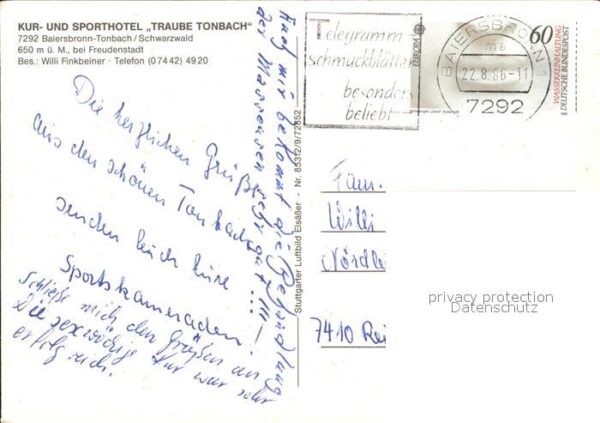 KUR- UND SPORTHOTEL „TRAUBE TONBACH"
7292 Baiersbronn-Tonbach/Schwarzwald
650 m ü. M., bei Freudenstadt
Bes.: Willi Finkbeiner · Telefon (0 74 42) 49 20
Die herzlichen Grüße
aus den schönen Tonbach
senden Euch Eure
Sportskameraden!
Schließe mich den Grüßen an
Die sexwöchige Kur war sehr
erfolgreich.
Auch mir bekommt die Behandlung
der Masseusen sehr gut !!! —
Stuttgarter Luftbild Elsäßer · Nr. 85312/9/72852
Telegramm-
schmuckblätter
besonders
beliebt
BAIERSBRONN 1
ma
22.8.86-11
7292
EUROPA
60
WASSERREINHALTUNG
DEUTSCHE BUNDESPOST
Fam.
Willi
Nördle
7410 Rei
privacy protection
Datenschutz